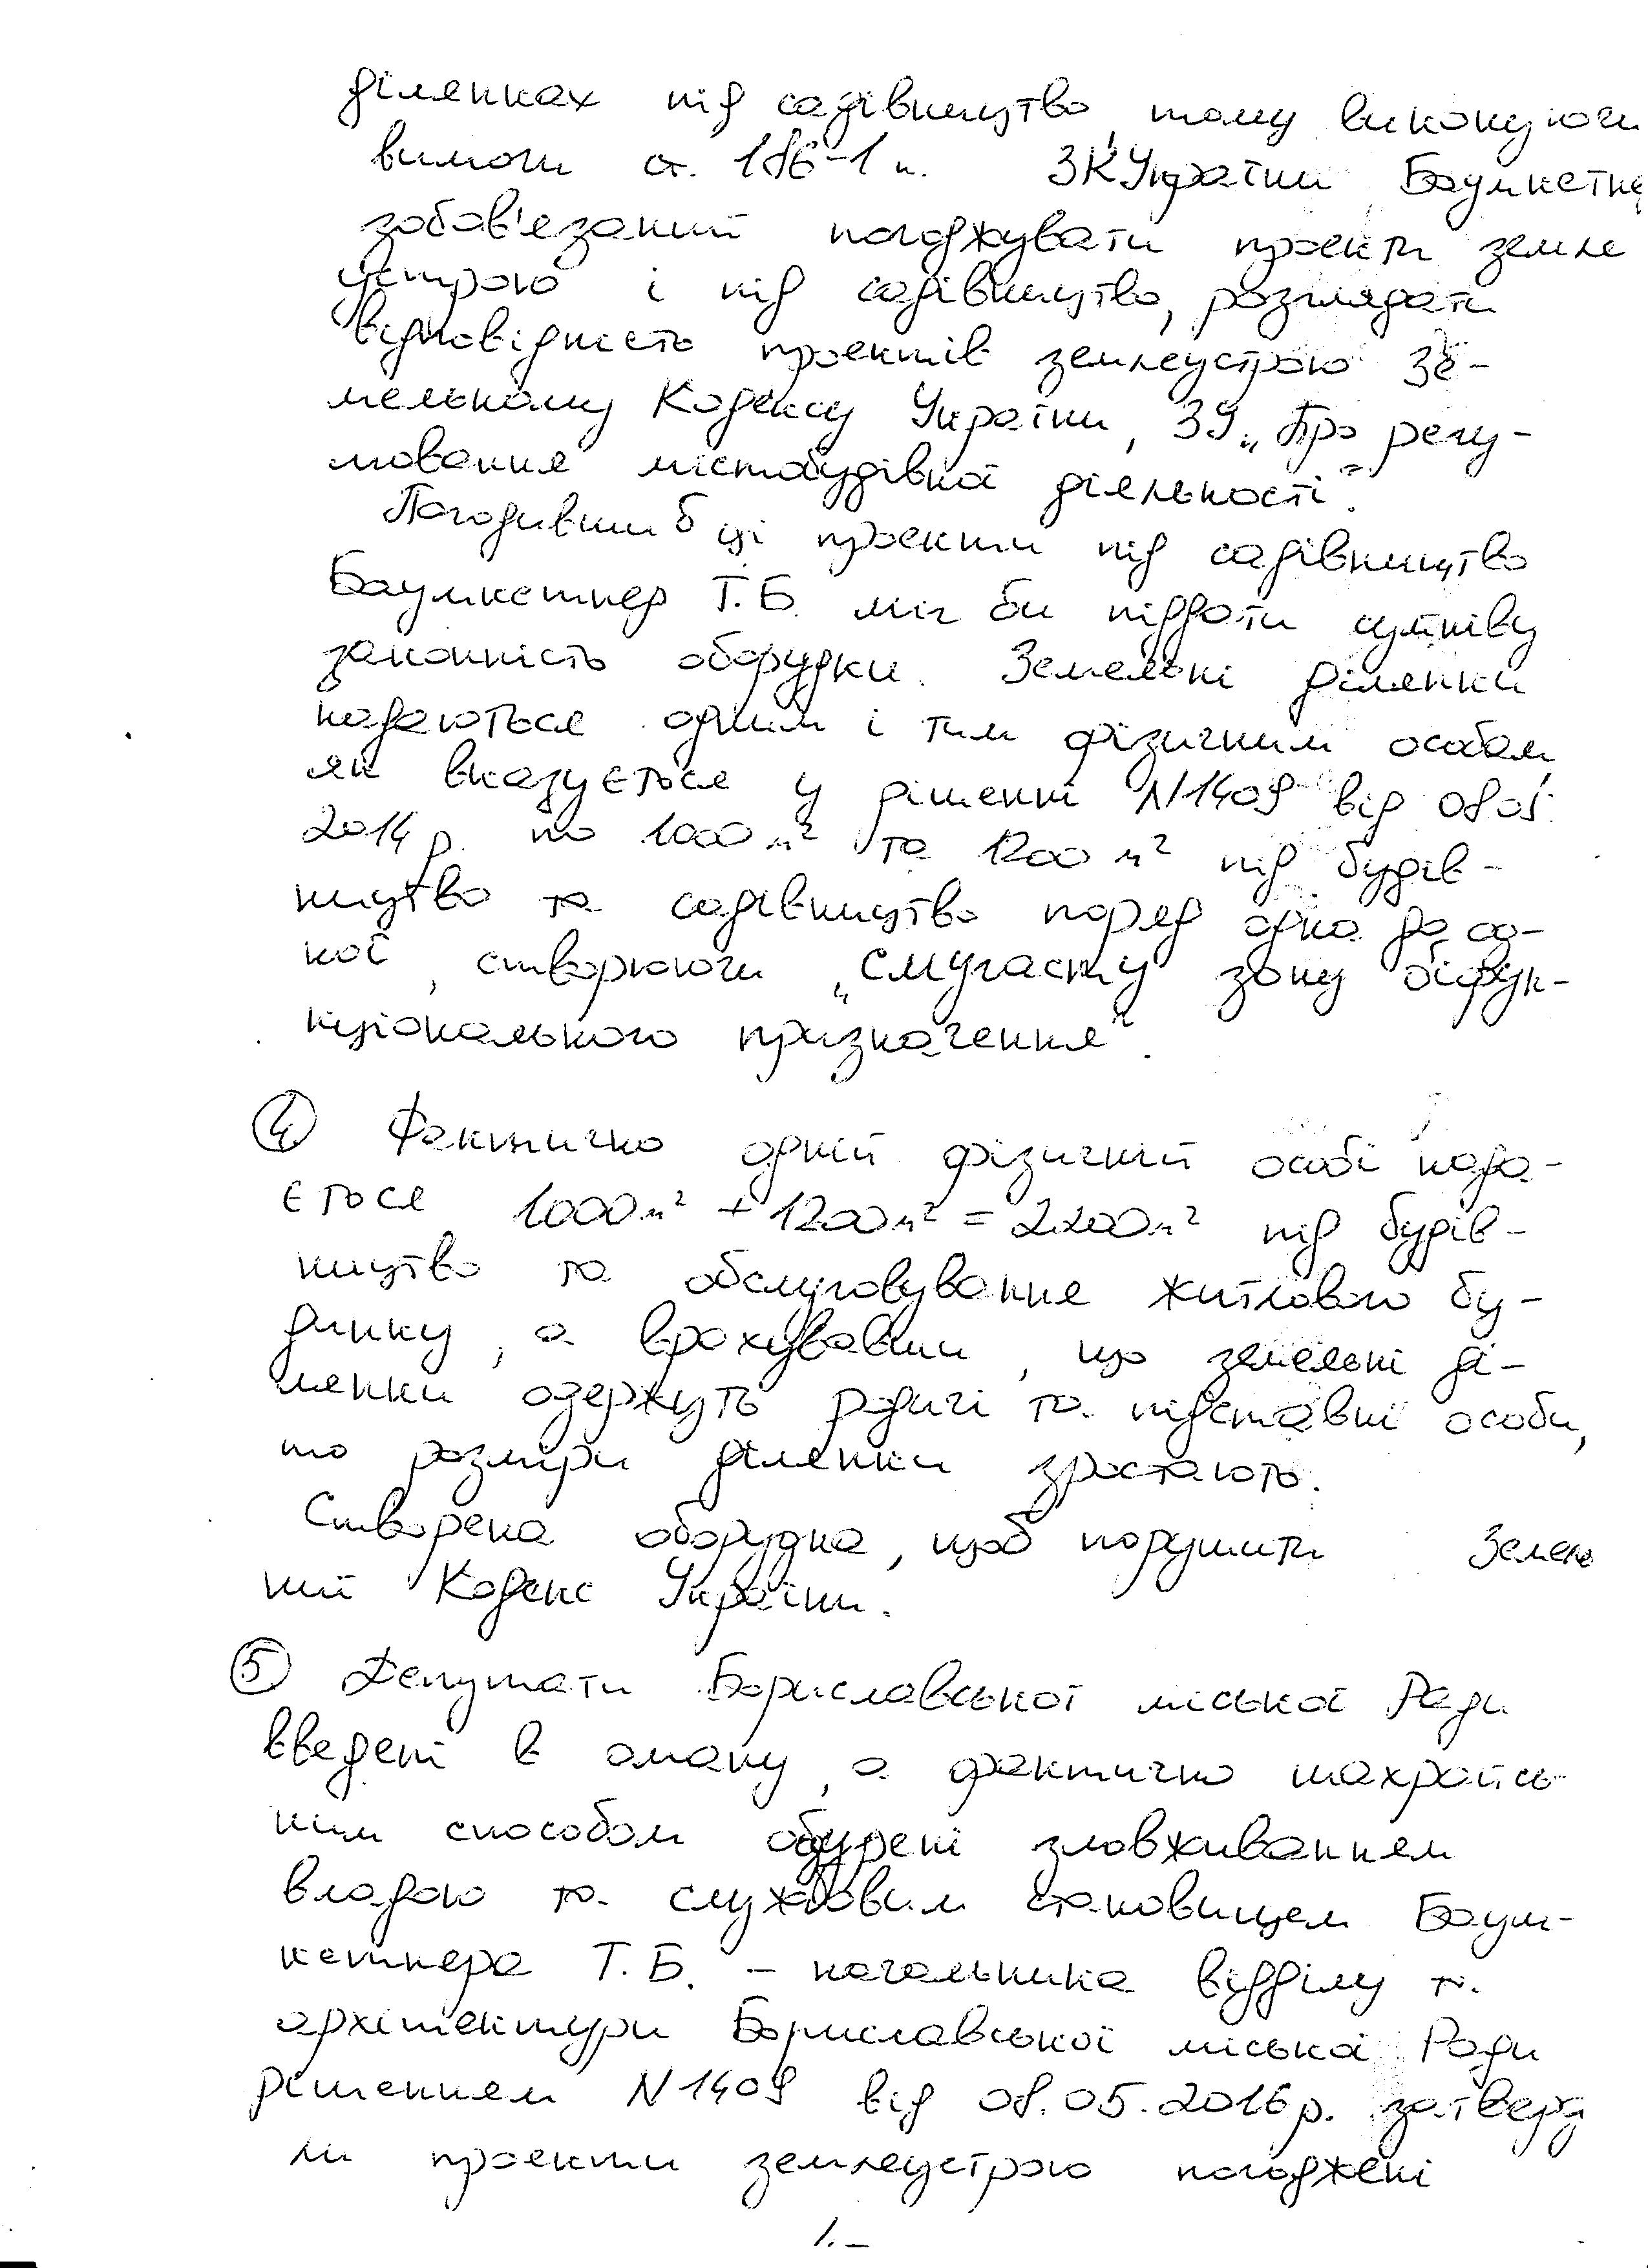 ділянках під садівництво, тому виконуючи
вимоги ст. 186-1 п. ЗК України Баумкетне
зобов'язаний погоджувати проекти земле
устрою і під садівництво, розглядати
відповідність проектів землеустрою Зе-
мельному Кодексу України, ЗУ „Про регу-
лювання містобудівної діяльності".
Погодивши б ці проекти під садівництво
Баумкетнер Т.Б. міг би піддати сумніву
законність оборудки. Земельні ділянки
надаються одним і тим фізичним особам,
як вказується у рішенні N1409 від 08.05.
2014 р. по 1000 м² та 1200 м² під будів-
ництво та садівництво поряд одна до од-
ної, створюючи „смугасту зону біфун-
кціонального призначення".
④ Фактично одній фізичній особі нада-
ється 1000 м² + 1200 м² = 2200 м² під будів-
ництво та обслуговування житлового бу-
динку, а врахувавши, що земельні ді-
лянки одержуть родичі та підставні особи,
то розміри ділянки зростають.
Створена оборудка, щоб порушити Земель
ний Кодекс України.
⑤ Депутати Бориславської міської Ради
введені в оману, а фактично шахрайсь-
ким способом обурені зловживанням
владою та службовим становищем Баум-
кетнера Т.Б. – начальника відділу та
архітектури Бориславської міської Ради
рішенням N1409 від 08.05.2016р. затверд
ли проекти землеустрою погоджені